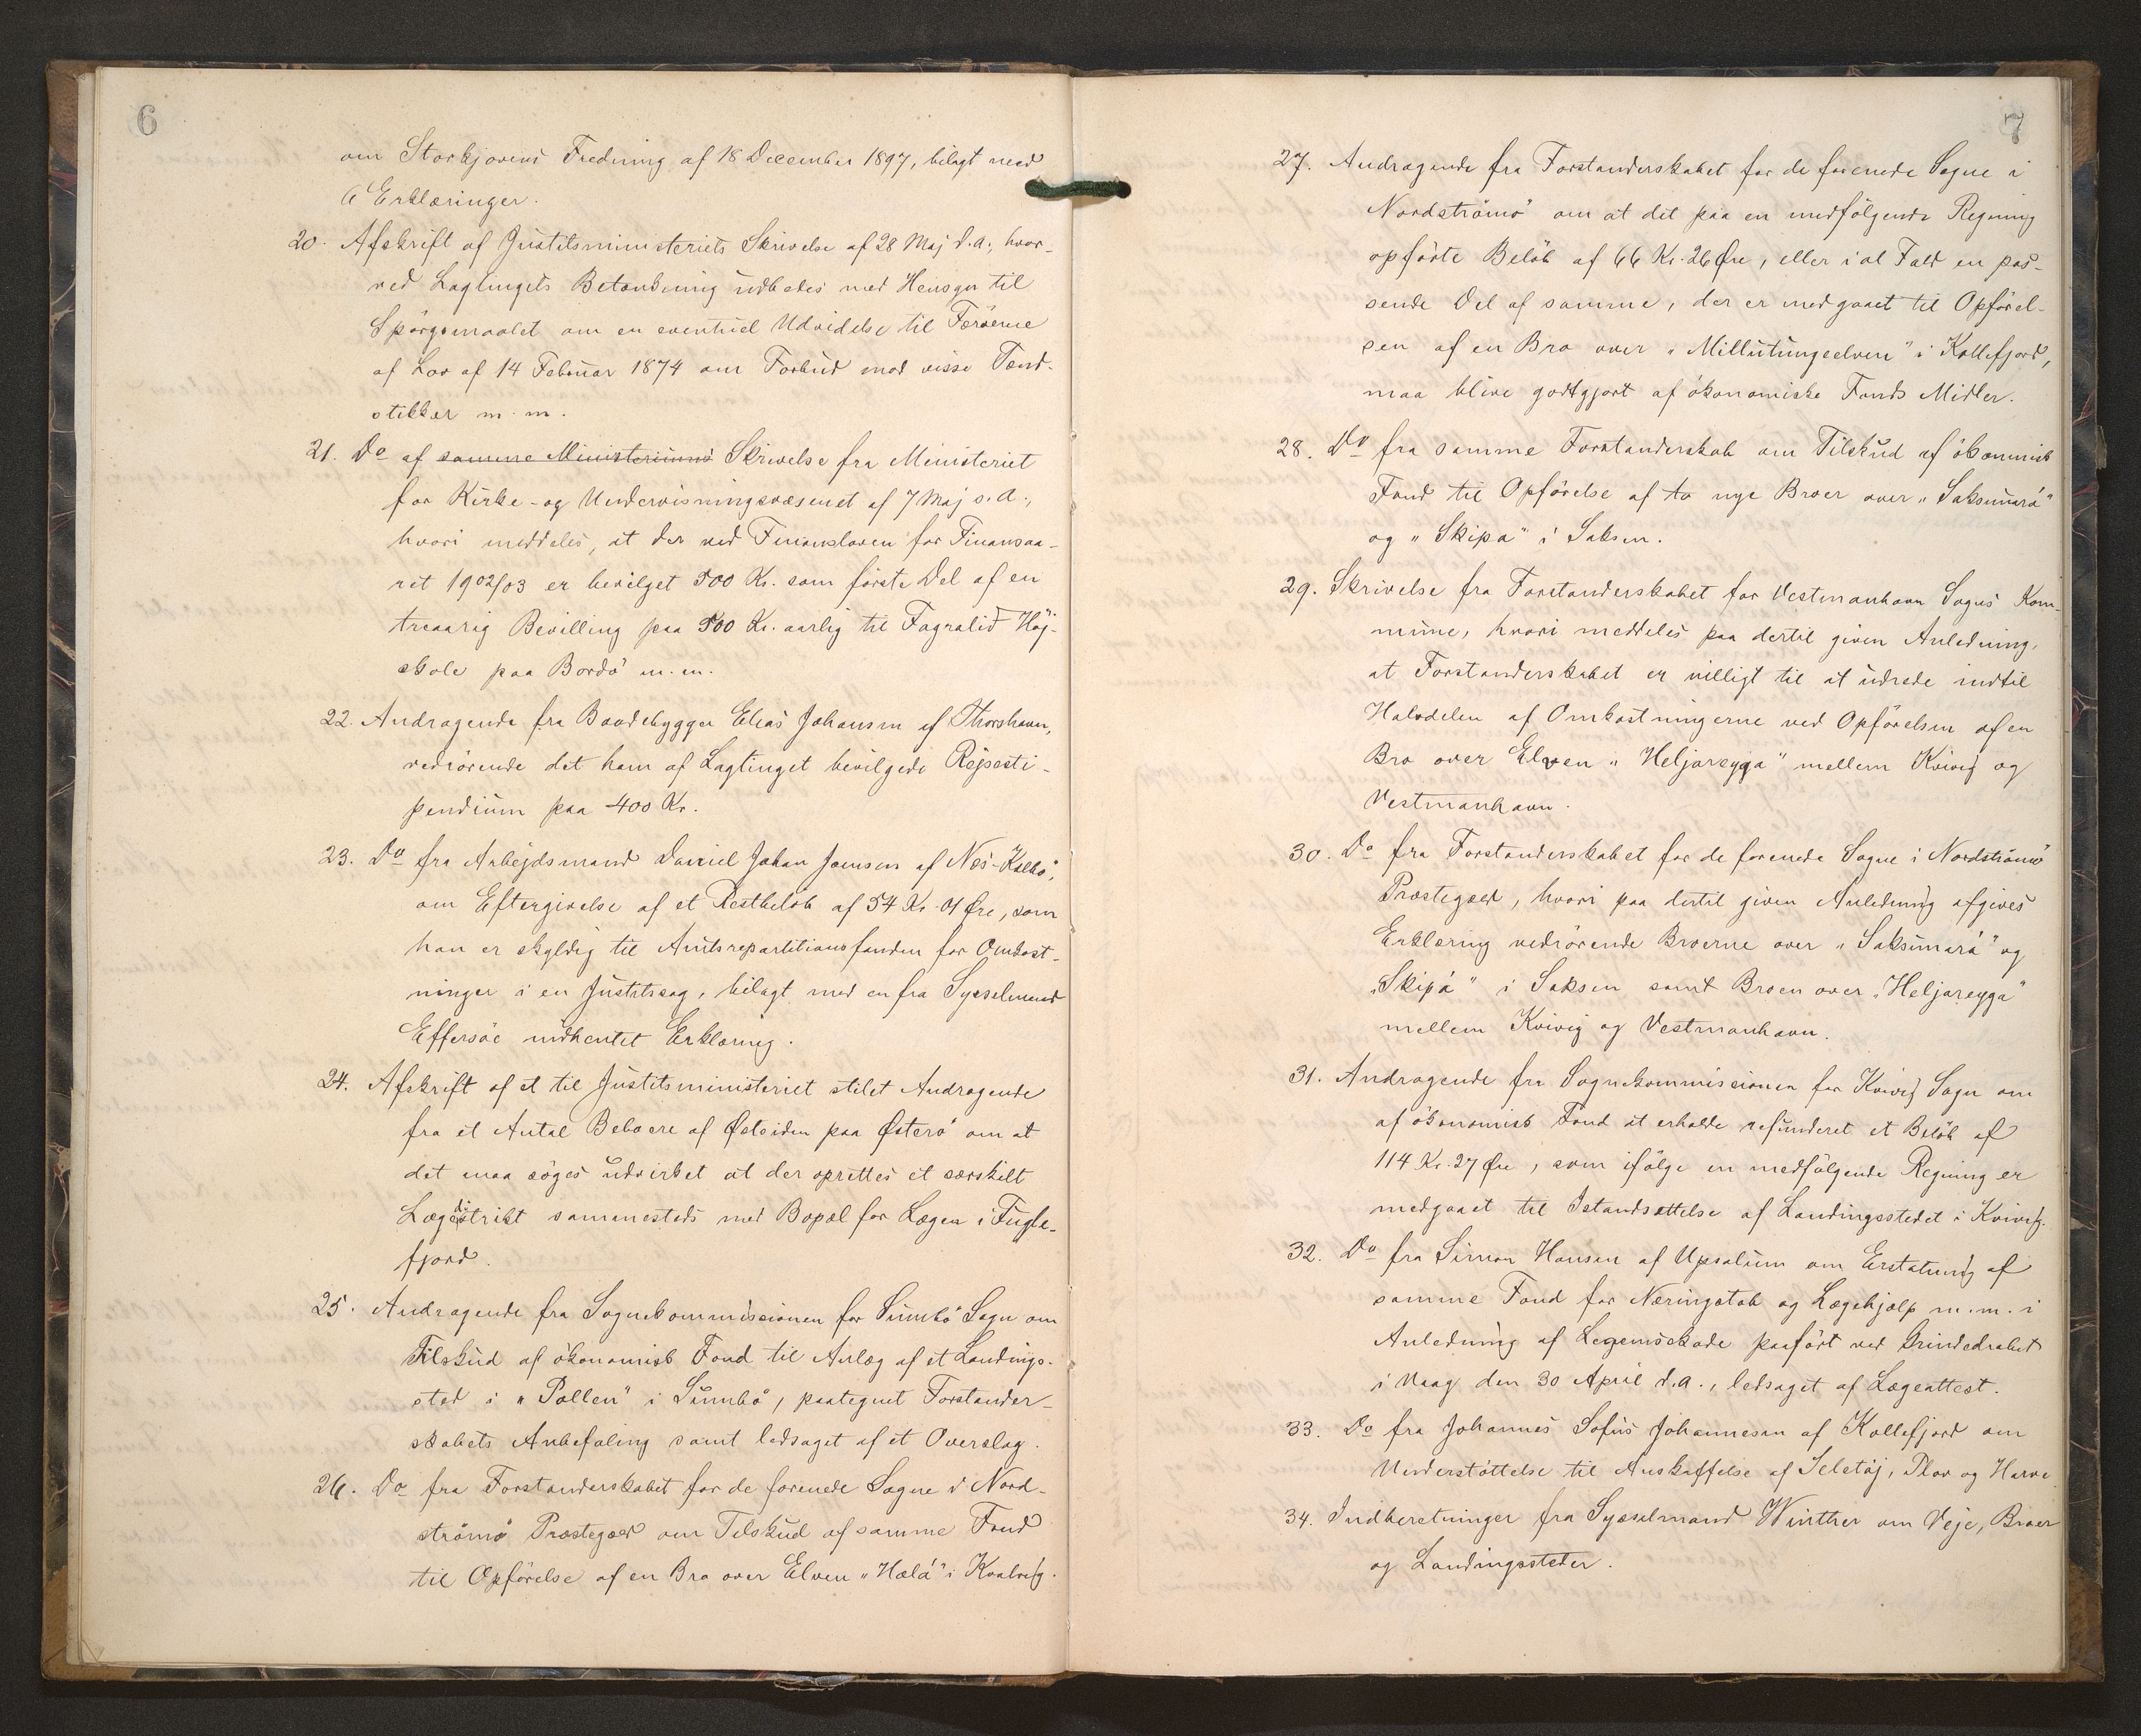 6
om Storkjovens Fredning af 18 December 1897, bilagt med
6 Erklæringer.
20. Afskrift af Justitsministeriets Skrivelse af 28 Maj d.a., hvor-
ved Lagtingets Betænkning udbedes med Hensyn til
Spörgsmaalet om en eventuel Udvidelse til Færöerne
af Lov af 14 Februar 1874 om Forbud mod visse Tænd-
stikker m.m.
21. Do af samme Ministeriums Skrivelse fra Ministeriet
for Kirke- og Undervisningsvæsenet af 7 Maj s.A.,
hvori meddeles, at der ved Finansloven for Finansaa-
ret 1902/03 er bevilget 500 Kr. som förste Del af en
treaarig Bevilling paa 500 Kr. aarlig til Fagralid Höj-
skole paa Bordö m.m.
22. Andragende fra Baadebygger Elias Johansen af Thorshavn,
vedrörende det ham af Lagtinget bevilgede Rejsesti-
pendium paa 400 Kr.
23. Do fra Arbejdsmand Daniel Johan Joensen af Nes-Kalbö,
om Eftergivelse af et Restbelöb af 54 Kr. 01 Øre, som
han er skyldig til Amtsrepartitionsfonden for Omkost-
ninger i en Justitssag, bilagt med en fra Sysselmand
Effersöe indhentet Erklæring.
24. Afskrift af et til Justitsministeriet stilet Andragende
fra et Antal Beboere af Østsiden paa Østerö om at
det maa söges udvirket at der oprettes et særskilt
Lægedistrikt sammesteds med Bopæl for Lægen i Fugle-
fjord.
25. Andragende fra Sognekommissionen for Sumbö Sogn om
Tilskud af ökonomisk Fond til Anlæg af et Landings-
sted i "Pollen" i Sumbö, paategnet Forstander-
skabets Anbefaling samt ledsaget af et Overslag.
26. Do fra Forstanderskabet for de forenede Sogne i Nord-
strömö Præstegæld om Tilskud af samme Fond
til Opförelse af en Bro over Elven "Hælá" i Kvalvig.
7
27. Andragende fra Forstanderskabet for de forenede Sogne i
Nordströmö om at det paa en medfölgende Regning
opförte Belöb af 66 Kr. 26 Øre, eller i al Fald en pas-
sende Del af samme, der er medgaaet til Opförel-
sen af en Bro over "Millutungeelven" i Kollefjord,
maa blive godtgjort af ökonomiske Fonds Midler.
28. Do fra samme Forstanderskab om Tilskud af ökonomisk
Fond til Opförelse af to nye Broer over "Saksunará"
og "Skipa" i Saksen.
29. Skrivelse fra Forstanderskabet for Vestmanhavn Sogns Kom-
mune, hvori meddeles paa dertil given Anledning,
at Forstanderskabet er villigt til at udrede indtil
Halvdelen af Omkostningerne ved Opförelsen af en
Bro over Elven "Heljareyga" mellem Kvivig og
Vestmanhavn.
30. Do fra Forstanderskabet for de forenede Sogne i Nordströmö
Præstegæld, hvori paa dertil given Anledning afgives
Erklæring vedrörende Broerne over "Saksunará" og
"Skipá" i Saksen samt Broen over "Heljareyga"
mellem Kvivig og Vestmanhavn.
31. Andragende fra Sognekommissionen for Kvivig Sogn om
af ökonomisk Fond at erholde refunderet et Belöb af
114 Kr. 27 Øre, som ifölge en medfölgende Regning er
medgaaet til Istandsættelse af Landingsstedet i Kvivig.
32. Do fra Simon Hansen af Upsalum om Erstatning af
samme Fond for Næringstab og Lægehjælp m.m. i
Anledning af Legemsskade paafört ved Grindedrabet
i Vaag den 30 April d.a., ledsaget af Lægeattest.
33. Do fra Johannes Sofus Johannesen af Kollefjord om
Understöttelse til Anskaffelse af Seletöj, Plov og Harve
34. Indberetninger fra Sysselmand Winther om Veje, Broer
og Landingssteder.